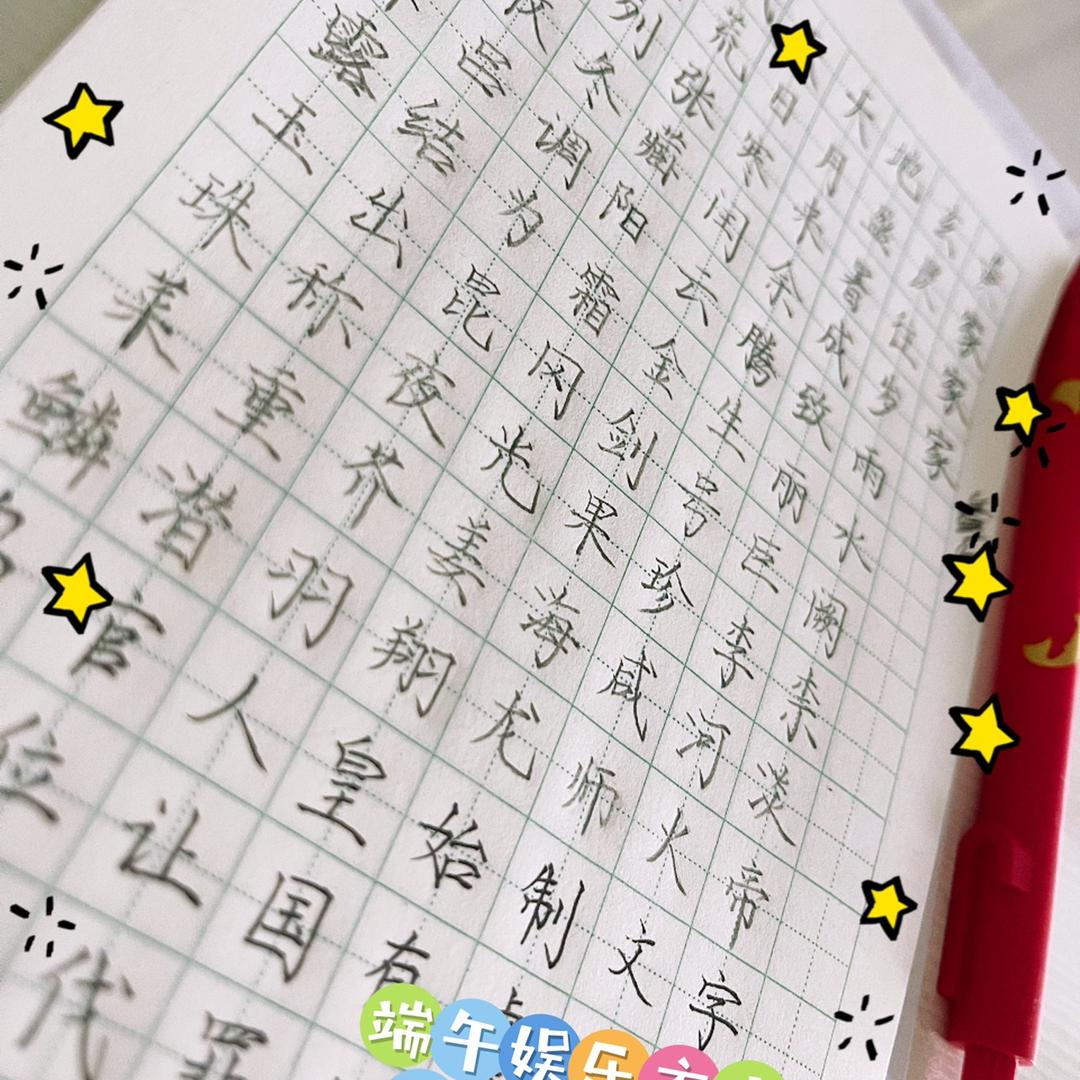 天地玄黄
荒日月盈昃家
列张寒来暑往家
收冬藏闰余成岁家
吕调阳云腾致雨
露结为霜金生丽水
玉出昆冈剑号巨阙
珠称夜光果珍李柰
菜重芥姜海咸河淡
鳞潜羽翔龙师火帝
官人皇始制文字
位让国有
代罪
端午娱乐